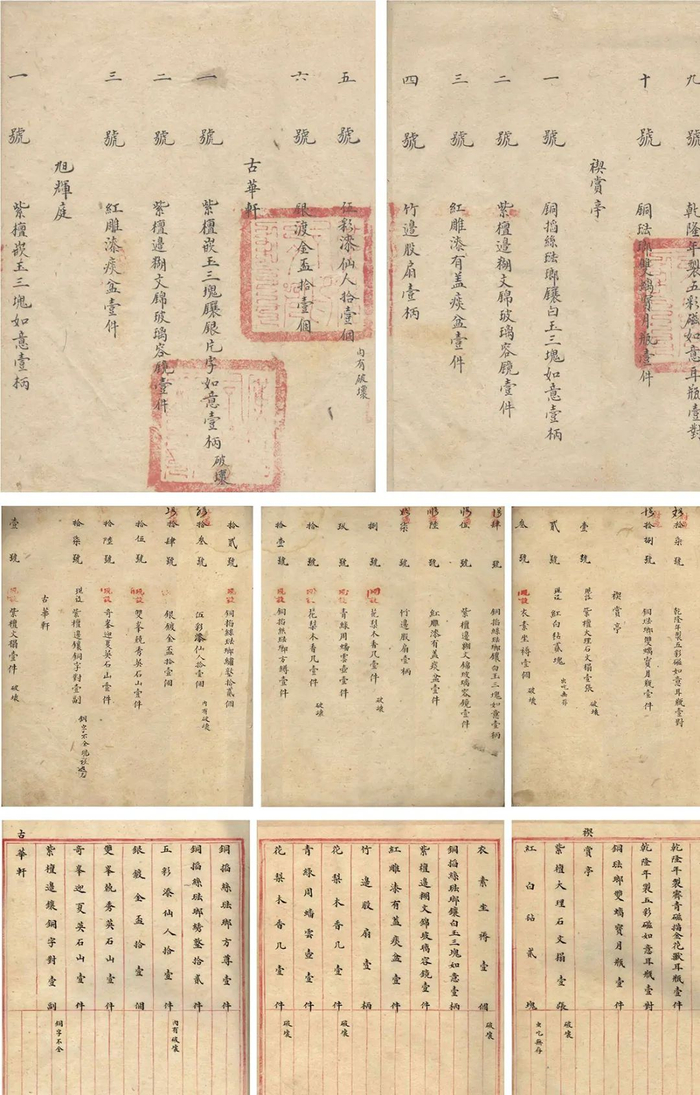 九號 乾隆年製五彩磁如意耳瓶壹對
十號 銅琺瑯雙螭寶月瓶壹件
禊賞亭
一號 銅掐絲琺瑯鑲白玉三塊如意壹柄
二號 紫檀邊糊文錦玻璃容鏡壹件
三號 紅雕漆有蓋痰盆壹件
四號 竹邊股扇壹柄
五號 伍彩漆仙人拾壹個 內有破壞
六號 銀渡金盃拾壹個
古華軒
一號 紫檀嵌玉三塊鑲銀片字如意壹柄 破壞
二號 紫檀邊糊文錦玻璃容鏡壹件
三號 紅雕漆痰盆壹件
旭輝庭
一號 紫檀嵌玉三塊如意壹柄
拾柒號 乾隆年製五彩磁如意耳瓶壹對
拾捌號 銅琺瑯雙螭寶月瓶壹件
禊賞亭
壹號 現設 紫檀大理石文榻壹張 破壞
貳號 現設 紅白毡貳塊 虫吃無存
叁號 現設 衣素坐褥壹個 破壞
肆號 銅掐絲琺瑯鑲白玉三塊如意壹柄
伍號 紫檀邊糊文錦玻璃容鏡壹件
陸號 紅雕漆有蓋痰盆壹件
柒號 竹邊股扇壹柄
捌號 現設 花梨木香几壹件 破壞
玖號 現設 青綠周蟠雲壺壹件
拾號 現設 花梨木香几壹件 破壞
拾壹號 現設 銅掐絲琺瑯方罇壹件
拾貳號 現設 銅掐絲琺瑯繡墊拾貳個
拾叁號 伍彩漆仙人拾壹個 內有破壞
拾肆號 銀鍍金盃拾壹個
拾伍號 現設 雙峯競秀英石山壹件
拾陸號 現設 奇峯迎夏英石山壹件
拾柒號 現設 紫檀邊鑲銅字對壹副 銅字不全
古華軒
壹號 現設 紫檀文榻壹件 破壞
乾隆年製霽青磁描金花獸耳瓶壹件
乾隆年製五彩磁如意耳瓶壹對
銅琺瑯雙螭寶月瓶壹件
禊賞亭
紫檀大理石文榻壹張 破壞
紅白毡貳塊 虫吃無存
衣素坐褥壹個 破壞
銅掐絲琺瑯鑲白玉三塊如意壹柄
紫檀邊糊文錦玻璃容鏡壹件
紅雕漆有蓋痰盆壹件
竹邊股扇壹柄
花梨木香几壹件 破壞
青綠周蟠雲壺壹件
花梨木香几壹件 破壞
銅掐絲琺瑯方尊壹件
銅掐絲琺瑯繡墊拾貳件
五彩漆仙人拾壹件 內有破壞
銀鍍金盃拾壹個
雙峯競秀英石山壹件
奇峯迎夏英石山壹件
紫檀邊鑲銅字對壹副 銅字不全
古華軒